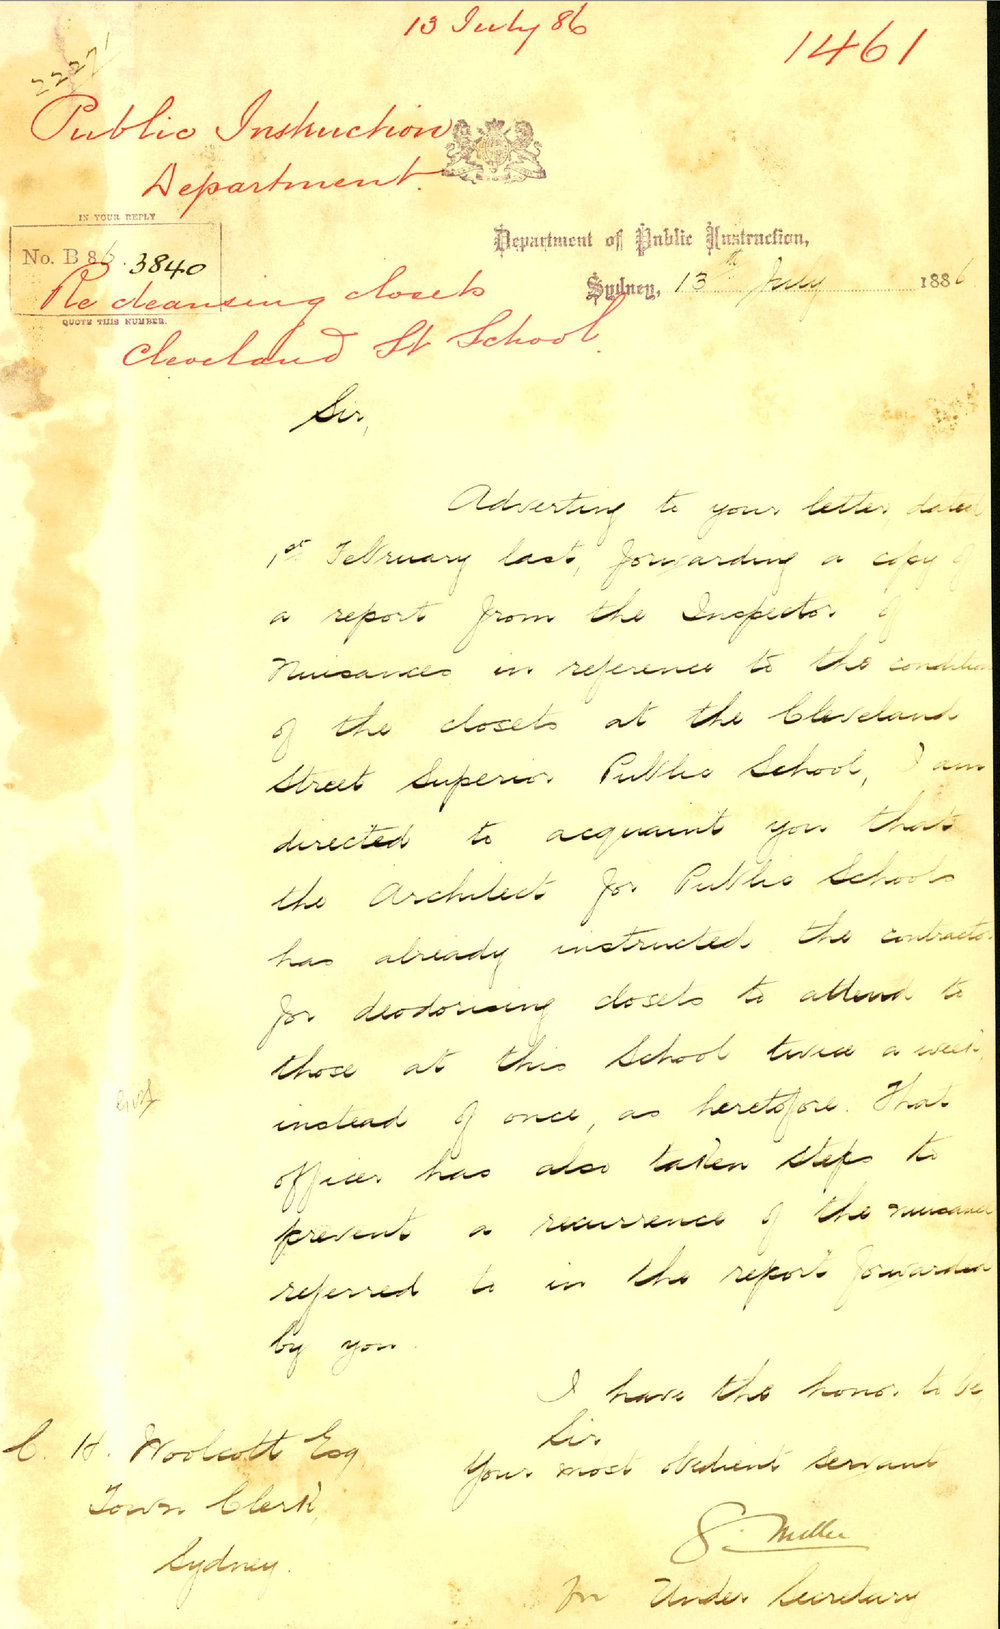 13 July 86
1461
2227
Public Instruction
Department.
IN YOUR REPLY
No. B 86. 3840
QUOTE THIS NUMBER.
Re cleansing closets
Cleveland St School
Department of Public Instruction,
Sydney, 13th July 1886
Sir,
Adverting to your letter dated
1st February last, forwarding a copy of
a report from the Inspector of
Nuisances in reference to the condition
of the closets at the Cleveland
Street Superior Public School, I am
directed to acquaint you that
the Architect for Public Schools
has already instructed the contractor
for deodorising closets to attend to
those at this School twice a week,
instead of once, as heretofore. That
officer has also taken steps to
prevent a recurrence of the nuisance
referred to in the report forwarded
by you.
I have the honor to be,
Sir
Your most obedient servant
G. Miller
for Under Secretary
C. H. Woolcott Esq
Town Clerk,
Sydney.